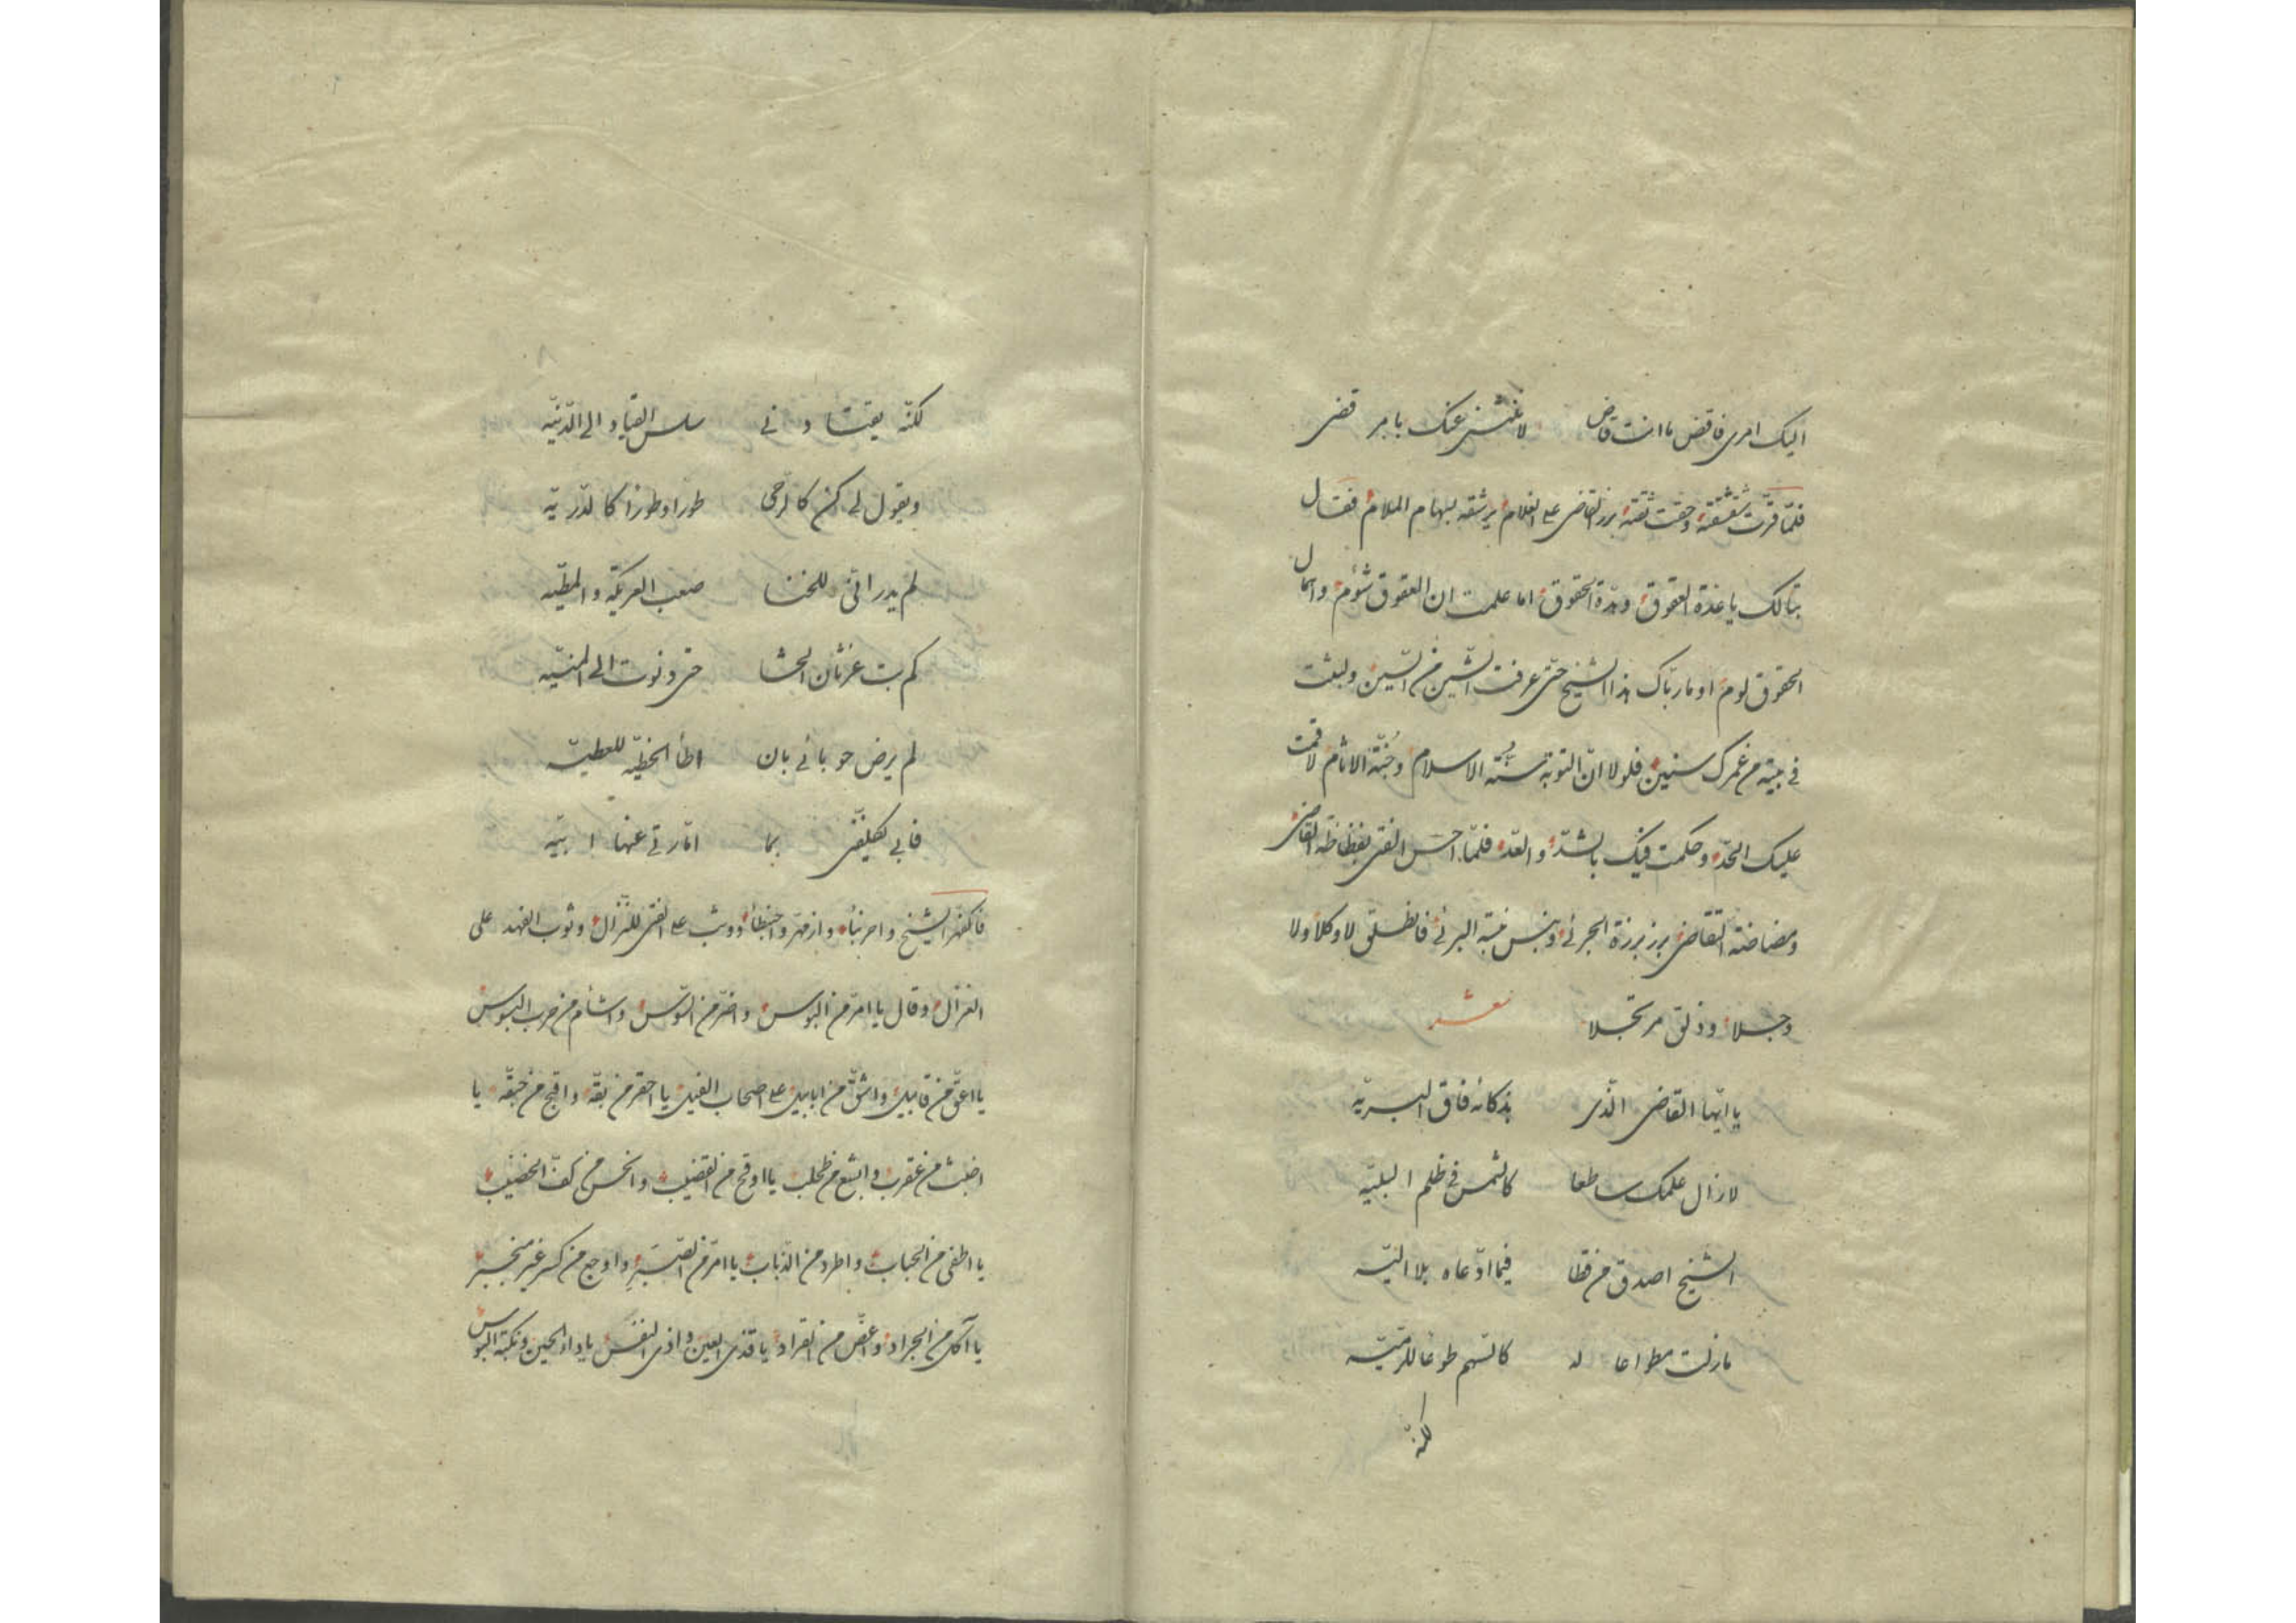 اليك امرى فاقض ما انت قاض لا ننثنى عنك بامر قضى
فلمّا قرّت شقشقته وحقت ثقته برز القاضى على الغلام يرشقه بسهام الملام فقال
تبالك يا غذة العقوق وهدّة الحقوق اما علمت ان العقوق شؤم واهمال
الحقوق لوم او ما ربّاك هذا الشيخ حتى عرفت الشين من السّين ولبثت
فى بيته من عمرك سنين فلولا انّ التوبة سنّة الاسلام وجُنّة الاثام لاقمت
عليك الحدّ وحكمت فيك بالشدّ والعدّ فلمّا احسّ الفتى بفظاظة القاضى
ومضاضة التقاضى برز برزة الجرئ ونبس نبسة البرئ فانطلق لا وكلا ولا
وجلا وذلق مرتجلا شعر
يا ايّها القاضى الّذى بذكائه فاق البريّه
لا زال علمك ساطعا كالشمس فى ظلم البليّه
الشيخ اصدق من قطا فيما ادّعاه بلا اليّه
ما زلت مطواعا له كالسّهم طوعا للرميّه
لكنّه
لكنّه يقتادنى سلس القياد الى الدّنيّه
ويقول لى كن كالرحى طورا وطورا كالذّريّه
لم يدر انّى للخنا صعب العريكة والمطيّه
كم بت غرثان الحشا حتى دنوت الى المنيّه
لم يرض حوبائى بان اطأ الخطيّه للعطيّه
فابى تكليفى بما امّارتى عنها ابيّه
فاكفهرّ الشيخ واحرنبأ وازمهرّ واحبنطأ ووثب على الفتى للنّزال وثوب الفهد على
الغزال وقال يا امرّ من البؤس واضرّ من السّوس واشأم من حرب البسوس
يا اعقّ من قابيل واشقّ من ابابيل على اصحاب الفيل يا احقر من بقّه واقبح من حبقّه يا
اخبث من عقرب وابشع من طحلب يا اوقح من القضيب وانحس من كفّ الخضيب
يا اطفى من الحباب واطرد من الذّباب يا امرّ من الصّبَرِ واوجع من كسر غير منجبر
يا آكل من الجراد واغضّ من القراد يا قذى العين واذى النفس يا داء الحين ونكبة البؤس